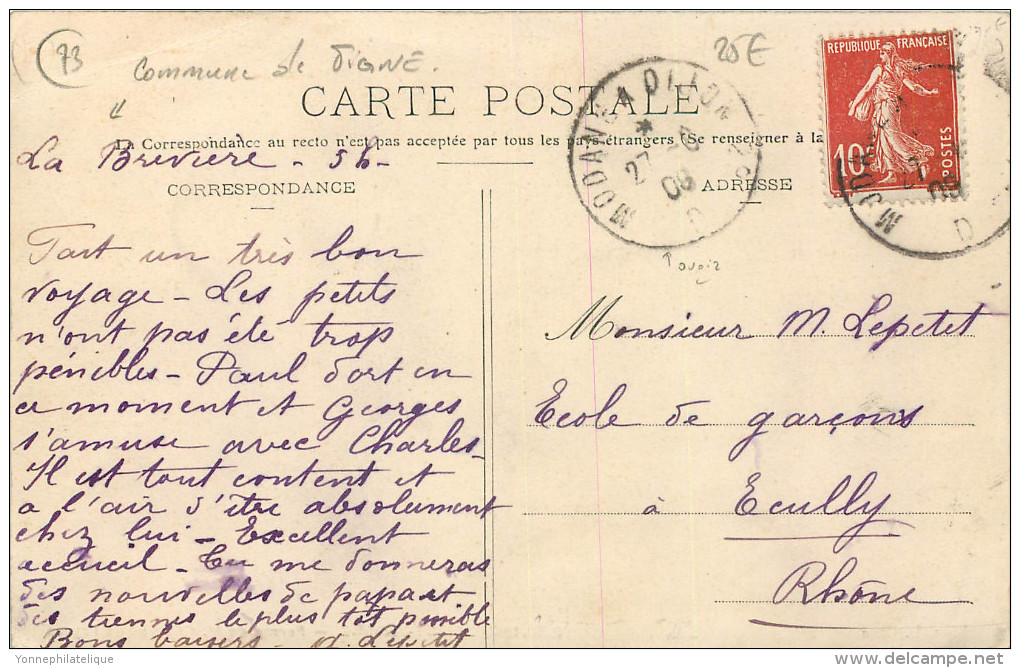 73
Commune de Tigne.
25E
CARTE POSTALE
La Correspondance au recto n'est pas acceptée par tous les pays étrangers (Se renseigner à la
La Brévière - 5h -
CORRESPONDANCE
ADRESSE
REPUBLIQUE FRANÇAISE
10c
POSTES
MODANE A DIJON
27
08
D
avoir
Tart un très bon
voyage - Les petits
n'ont pas été trop
pénibles - Paul dort en
ce moment et Georges
s'amuse avec Charles -
Il est tout content et
a l'air d'être absolument
chez lui - Excellent
accueil - Tu me donneras
des nouvelles de papa et
des tiennes le plus tôt possible
Bons baisers Lepetit
Monsieur M. Lepetit
Ecole de garçons
à Ecully
Rhône
Yonnephilatelique
delcampe.net